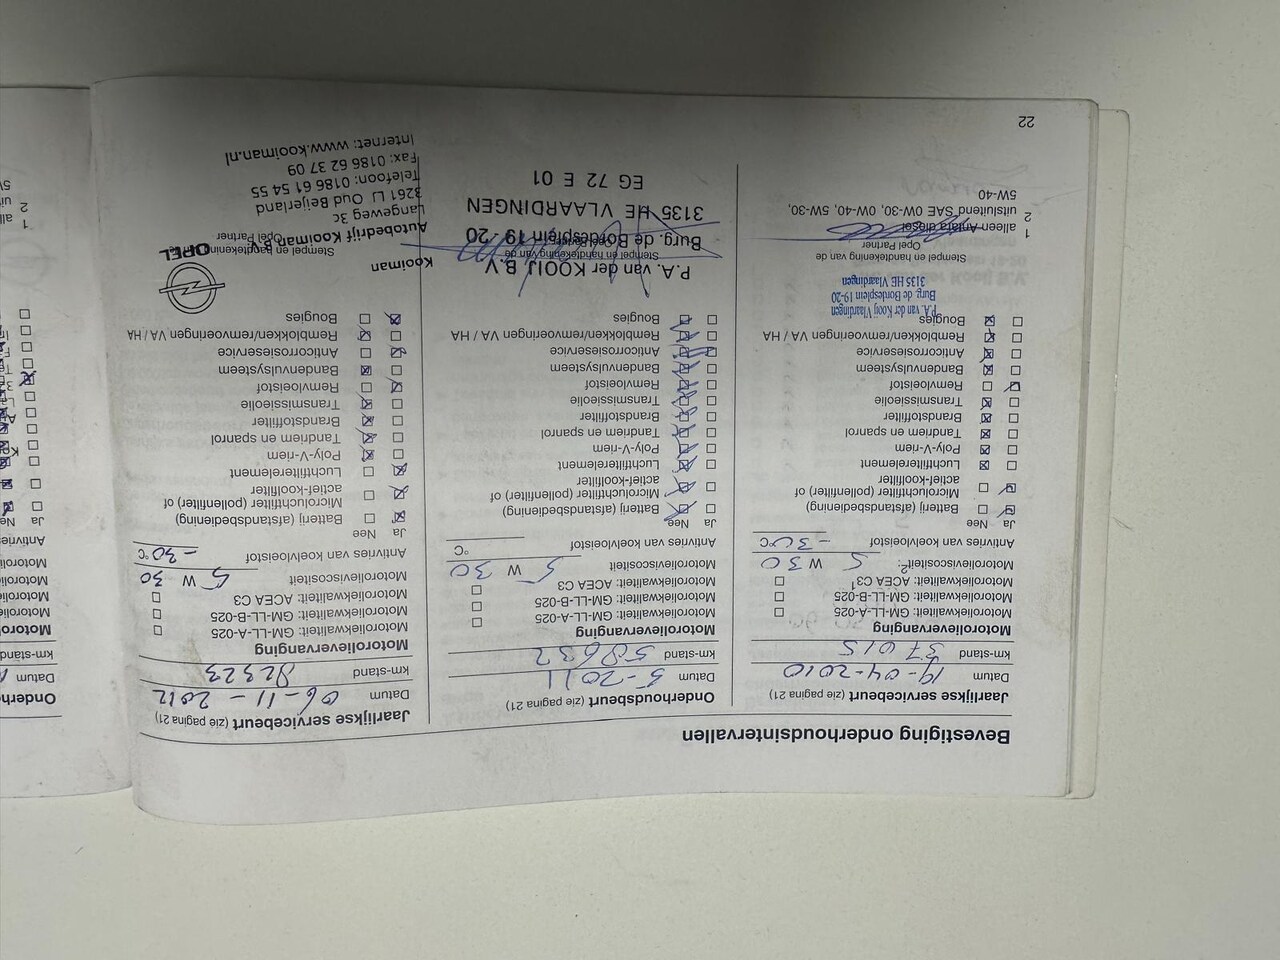 Bevestiging onderhoudsintervallen
Jaarlijkse servicebeurt (zie pagina 21)
Datum 19-04-2010
km-stand 37015
Motorolievervanging
Motoroliekwaliteit: GM-LL-A-025
Motoroliekwaliteit: GM-LL-B-025
Motoroliekwaliteit: ACEA C3¹
Motorolieviscositeit²: 5 W 30
Antivries van koelvloeistof -30 °C
Ja Nee
Batterij (afstandsbediening)
Microluchtfilter (pollenfilter) of
actief-koolfilter
Luchtfilterelement
Poly-V-riem
Tandriem en spanrol
Brandstoffilter
Transmissieolie
Remvloeistof
Bandenvulsysteem
Anticorrosieservice
Remblokken/remvoeringen VA / HA
Bougies
P.A. van der Kooij Vlaardingen
Burg. de Bordesplein 19-20
3135 HE Vlaardingen
Stempel en handtekening van de
Opel Partner
1 alleen Antara diesel
2 uitsluitend SAE 0W-30, 0W-40, 5W-30,
5W-40
22
Onderhoudsbeurt (zie pagina 21)
Datum 5-2011
km-stand 58632
Motorolievervanging
Motoroliekwaliteit: GM-LL-A-025
Motoroliekwaliteit: GM-LL-B-025
Motoroliekwaliteit: ACEA C3
Motorolieviscositeit 5 W 30
Antivries van koelvloeistof °C
Ja Nee
Batterij (afstandsbediening)
Microluchtfilter (pollenfilter) of
actief-koolfilter
Luchtfilterelement
Poly-V-riem
Tandriem en spanrol
Brandstoffilter
Transmissieolie
Remvloeistof
Bandenvulsysteem
Anticorrosieservice
Remblokken/remvoeringen VA / HA
Bougies
P.A. van der KOOIJ B.V.
Stempel en handtekening van de
Burg. de Bordesplein 19-20
3135 HE VLAARDINGEN
EG 72 E 01
Jaarlijkse servicebeurt (zie pagina 21)
Datum 06-11-2012
km-stand 82323
Motorolievervanging
Motoroliekwaliteit: GM-LL-A-025
Motoroliekwaliteit: GM-LL-B-025
Motoroliekwaliteit: ACEA C3
Motorolieviscositeit 5 W 30
Antivries van koelvloeistof -30 °C
Ja Nee
Batterij (afstandsbediening)
Microluchtfilter (pollenfilter) of
actief-koolfilter
Luchtfilterelement
Poly-V-riem
Tandriem en spanrol
Brandstoffilter
Transmissieolie
Remvloeistof
Bandenvulsysteem
Anticorrosieservice
Remblokken/remvoeringen VA / HA
Bougies
Kooiman
OPEL
Stempel en handtekening
Opel Partner
Autobedrijf Kooiman B.V.
Langeweg 3c
3261 LJ Oud Beijerland
Telefoon: 0186 61 54 55
Fax: 0186 62 37 09
Internet: www.kooiman.nl